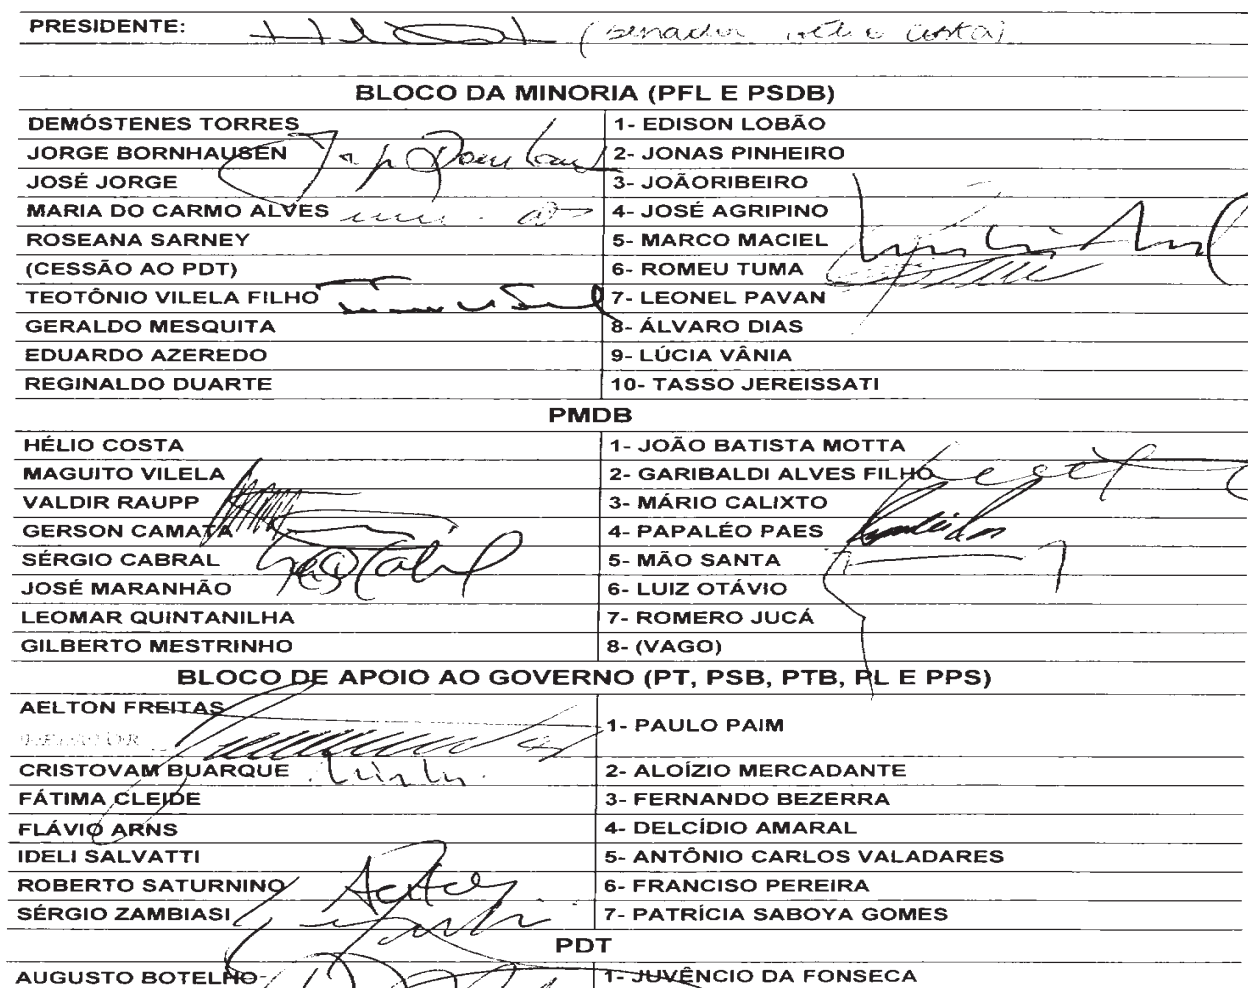 PRESIDENTE: (Senador Hélio Costa)
BLOCO DA MINORIA (PFL E PSDB)
DEMÓSTENES TORRES 1- EDISON LOBÃO
JORGE BORNHAUSEN 2- JONAS PINHEIRO
JOSÉ JORGE 3- JOÃORIBEIRO
MARIA DO CARMO ALVES 4- JOSÉ AGRIPINO
ROSEANA SARNEY 5- MARCO MACIEL
(CESSÃO AO PDT) 6- ROMEU TUMA
TEOTÔNIO VILELA FILHO 7- LEONEL PAVAN
GERALDO MESQUITA 8- ÁLVARO DIAS
EDUARDO AZEREDO 9- LÚCIA VÂNIA
REGINALDO DUARTE 10- TASSO JEREISSATI
PMDB
HÉLIO COSTA 1- JOÃO BATISTA MOTTA
MAGUITO VILELA 2- GARIBALDI ALVES FILHO
VALDIR RAUPP 3- MÁRIO CALIXTO
GERSON CAMATA 4- PAPALÉO PAES
SÉRGIO CABRAL 5- MÃO SANTA
JOSÉ MARANHÃO 6- LUIZ OTÁVIO
LEOMAR QUINTANILHA 7- ROMERO JUCÁ
GILBERTO MESTRINHO 8- (VAGO)
BLOCO DE APOIO AO GOVERNO (PT, PSB, PTB, PL E PPS)
AELTON FREITAS 1- PAULO PAIM
CRISTOVAM BUARQUE 2- ALOÍZIO MERCADANTE
FÁTIMA CLEIDE 3- FERNANDO BEZERRA
FLÁVIO ARNS 4- DELCÍDIO AMARAL
IDELI SALVATTI 5- ANTÔNIO CARLOS VALADARES
ROBERTO SATURNINO 6- FRANCISO PEREIRA
SÉRGIO ZAMBIASI 7- PATRÍCIA SABOYA GOMES
PDT
AUGUSTO BOTELHO 1- JUVÊNCIO DA FONSECA